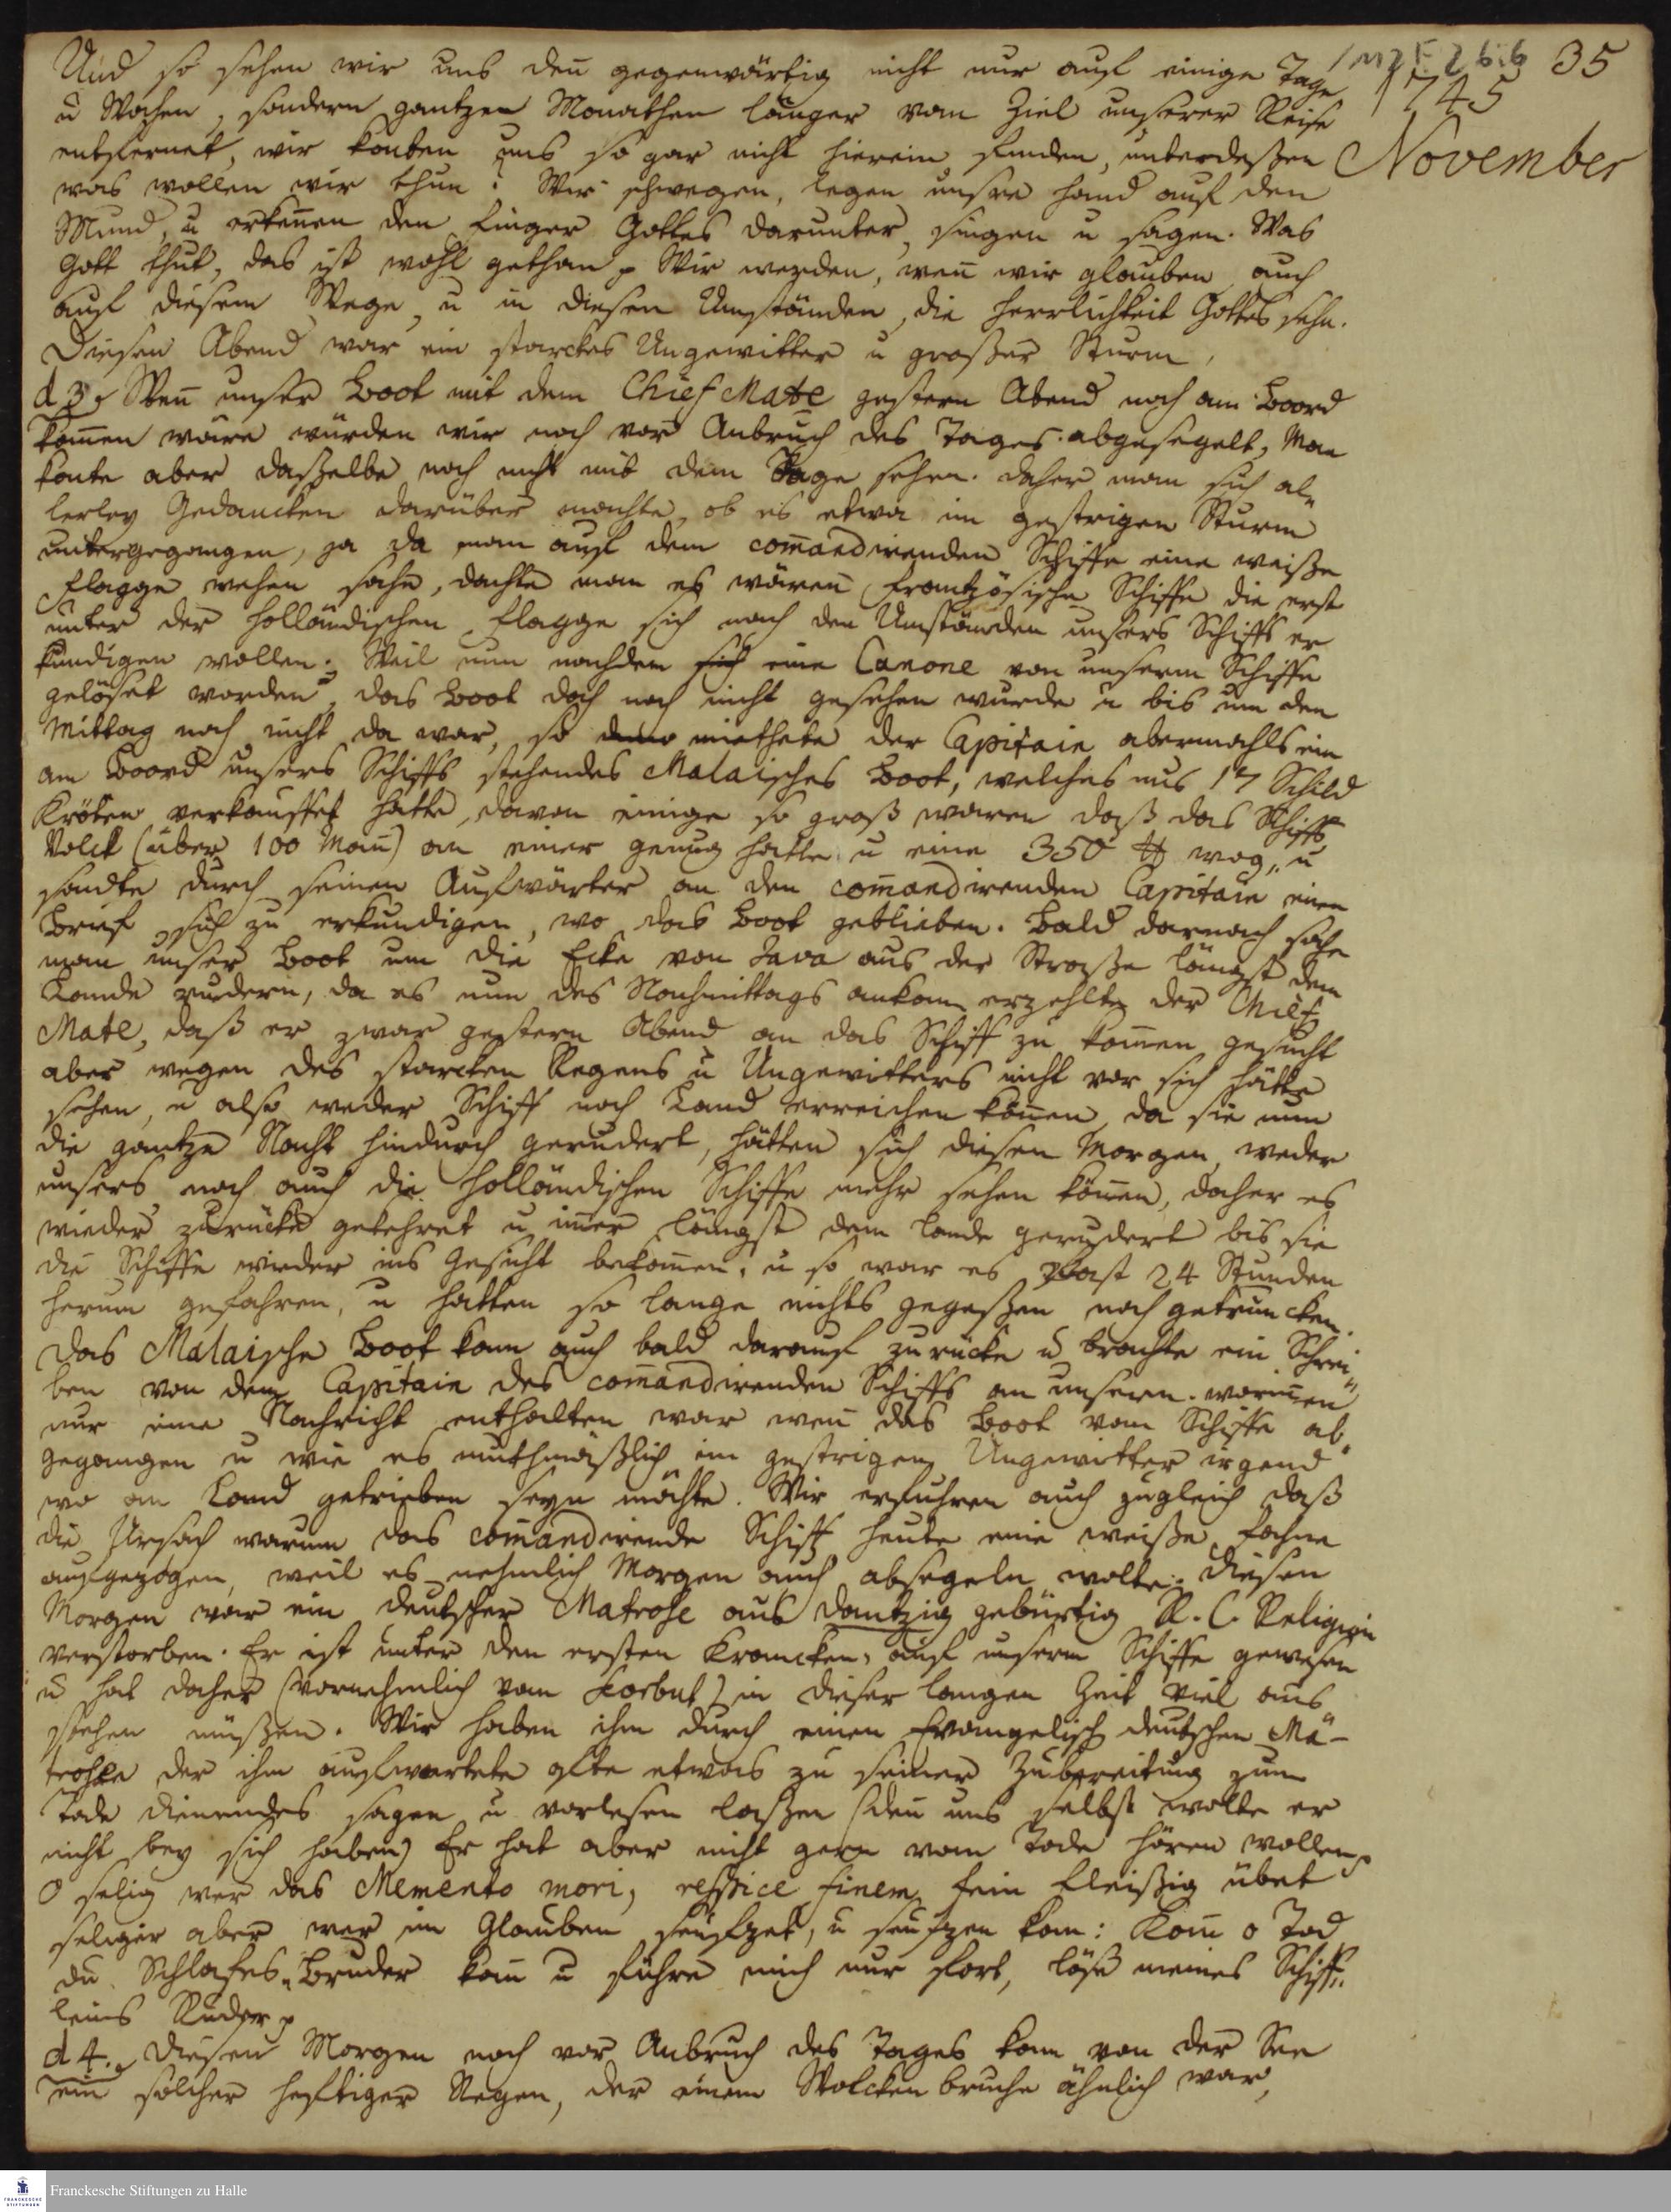 1 M2 F 26:6 35
1745
November
Und so sehen wir uns deñ gegenwärtig nicht nur auf einige Tage
u Wochen, sondern gantzen Monathen länger vom Ziel unserer Reise
entfernet, wir konten uns so gar nicht hierein finden, unterdeßen
was wollen wir thun? Wir schwegen, legen unsre Hand auf den
Mund, u erkeñen den Finger Gottes darunter, singen u sagen. Was
Gott thut, das ist wohl gethan p Wir werden, weñ wir glauben, auch
auf diesem Wege, u in diesen Umständen, die Herrlichkeit Gottes sehn.
Diesen Abend war ein starckes Ungewitter u großer Sturm.
d 3. Weñ unser Boot mit dem Chief Mate gestern Abend noch am Boord
kom̄en wäre würden wir noch vor Anbruch des Tages abgesegelt, Man
konte aber daßelbe noch nicht mit dem Tage sehen. daher man sich al„
lerley Gedancken darüber machte, ob es etwa im gestrigen Sturm
untergegangen, ja da man auf dem com̄andirenden Schiffe eine weiße
Flagge wehen sahe, dachte man es wären Frantzösische Schiffe die erst
unter der Holländischen Flagge sich nach den Umständen unsers Schiffs er
kundigen wollen. Weil nun nachdem sich eine Canone von unserm Schiffe
gelöset worden, das Boot doch noch nicht gesehen wurde u bis um den
Mittag noch nicht da war, so miethete der Capitain abermahls ein
am Boord unsers Schiffs stehendes Malaisches Boot, welches uns 17 Schild
Kröten verkauffet hatte, davon einige so groß waren daß das Schiffs
Volck (über 100 Mañ) an einer genug hatte u eine 350 ℔ wog, u
sandte durch seinen Aufwärter an den com̄andirenden Capitain einen
Brief, sich zu erkundigen, wo das Boot geblieben. Bald darnach sahe
man unser Boot um die Ecke von Java aus der Straße längst dem
Lande rudern, da es nun des Nachmittags ankam erzehlte der Chief
Mate, daß er zwar gestern Abend an das Schiff zu kom̄en gesucht
aber wegen des starcken Regens u Ungewitters nicht vor sich hätte
sehen, u also weder Schiff noch Land erreichen köñen, da sie nun
die gantze Nacht hindurch gerudert, hätten sie diesen Morgen, weder
unsers noch auch die Holländischen Schiffe mehr sehen köñen, daher es
wieder zurücke gekehret u im̄er längst dem Lande gerudert bis sie
die Schiffe wieder ins Gesicht bekom̄en. u so war es fast 24 Stunden
herum gefahren, u hatten so lange nichts gegeßen noch getruncken.
Das Malaische Boot kam auch bald darauf zurücke u brachte ein Schrei„
ben von dem Capitain des com̄andirenden Schiffs an unseren. woriñen
nur eine Nachricht enthalten war weñ das Boot vom Schiffe ab„
gegangen u wie es muthmäßlich im gestrigen Ungewitter irgend„
wo an Land getrieben seyn möchte. Wir erfuhren auch zugleich daß
die Ursach warum das com̄andirende Schiff heute eine weiße Fahne
aufgezogen, weil es nehmlich Morgen auch absegeln wolte. Diesen
Morgen war ein deutscher Matrose aus Dantzig gebürtig R. C. Religion
verstorben. Er ist unter den ersten Krancken auf unserm Schiffe gewesen
u hat daher (vornehmlich vom Scorbut) in dieser langen Zeit viel aus„
stehen müßen. Wir haben ihm durch einen Evangelisch deutschen Ma-
trosen der ihm aufwartete offte etwas zu seiner Zubereitung zum
Tode dienendes sagen u vorlesen laßen (deñ uns selbst wolte er
nicht bey sich haben) Er hat aber nicht gern vom Tode hören wollen.
O selig wer das Memento mori, respice finem fein fleißig übet
seliger aber wer im Glauben seufzet, u seufzen kan: Kom̄ o Tod
du Schlafes„Bruder kom̄ u führe mich nur fort, löse meines Schiff„
leins Ruder p
d 4. Diesen Morgen noch vor Anbruch des Tages kam von der See
ein solcher heftiger Regen, der einem Wolckenbruche ähnlich war,
FRANCKESCHE STIFTUNGEN
Franckesche Stiftungen zu Halle